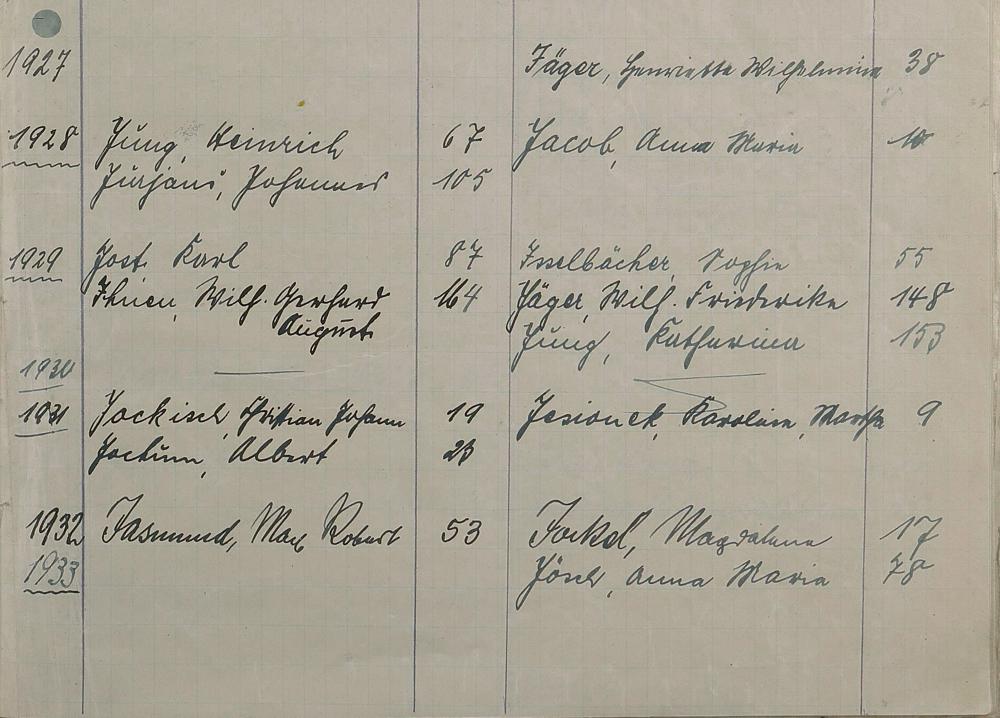 1927 Jäger, Henriette Wilhelmine 38
1928 Jung, Heinrich 67 Jacob, Anna Maria
Jurjans, Johannes 105
1929 Jost, Karl 87 Isselbächer, Sophie 55
Ihnen, Wilh. Gerhard 164 Jäger, Wilh. Friederike 148
August Jung, Katharina 153
1930
1931 Jockisch, Christian Johann 19 Jesionek, Karoline, Martha 9
Jochum, Albert 23
1932 Jasmund, Max Robert 53 Jockel, Magdalena 17
1933 Jösch, Anna Maria 78